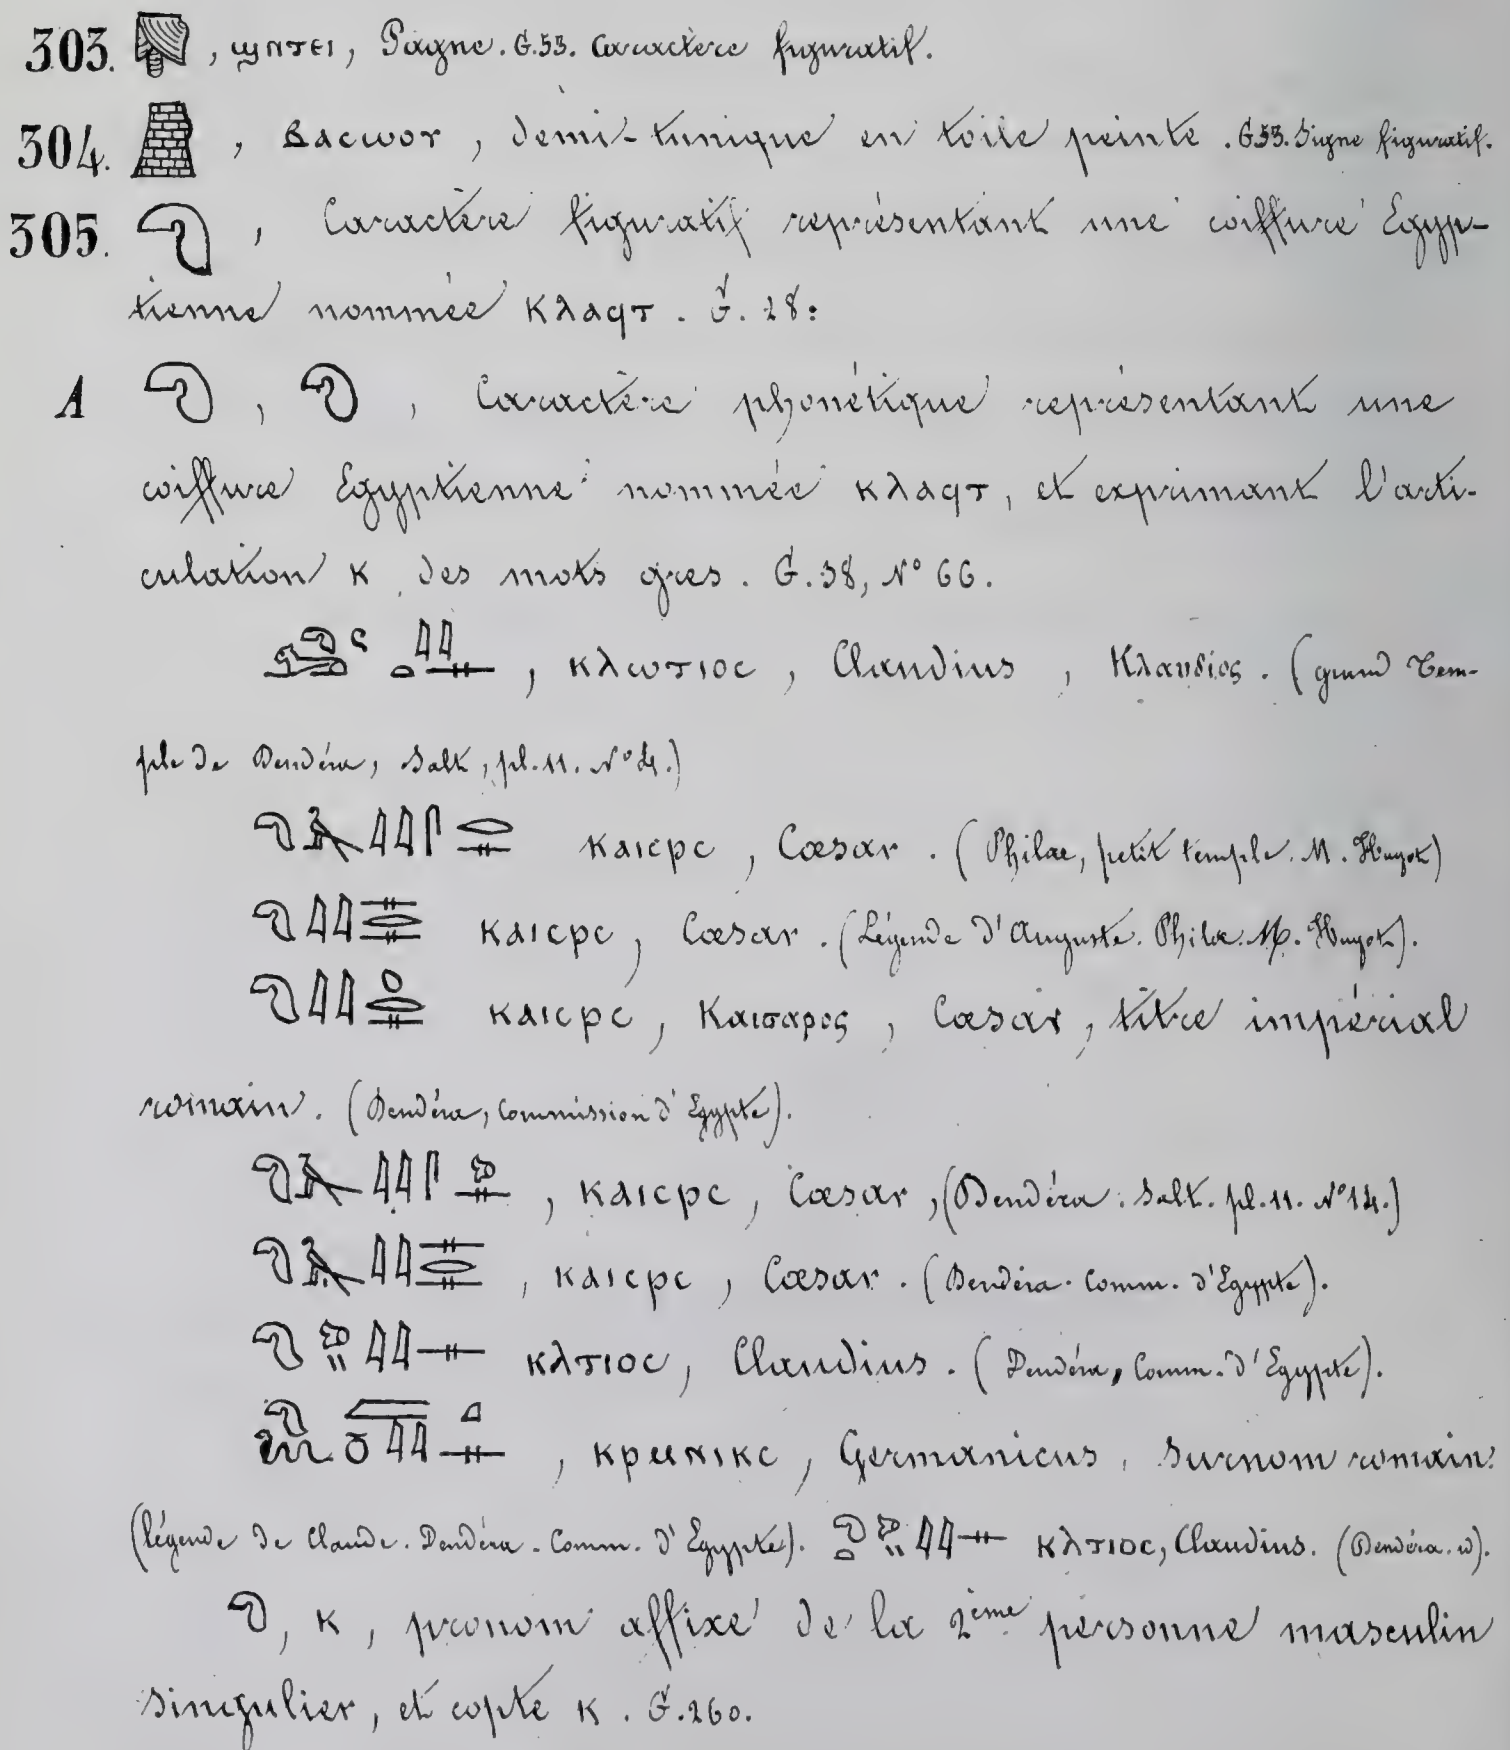 303. 𓋲, ϣⲛⲧⲉⲓ, Pagne. G.53. Caractère figuratif.
304. , ⲃⲁⲥⲱⲟⲩ, demi-tunique en toile peinte. G.53. Signe figuratif.
305. , Caractère figuratif représentant une coiffure Egyp-
tienne nommée ⲕⲗⲁϥⲧ. G. 28:
A , , Caractère phonétique représentant une
coiffure Egyptienne nommée ⲕⲗⲁϥⲧ, et exprimant l'arti-
culation ⲕ des mots grecs. G.38, N° 66.
, ⲕⲗⲱⲧⲓⲟⲥ, Claudius, Κλαυδιος. (grand Tem-
ple de Dendéra, Salt, pl. 11. N° 4.)
ⲕⲁⲓⲥⲣⲥ, Cæsar. (Philæ, petit temple. M. Huyot)
ⲕⲁⲓⲥⲣⲥ, Cæsar. (Légende d'Auguste. Philæ. M. Huyot).
ⲕⲁⲓⲥⲣⲥ, Καισαρος, Cæsar, titre impérial
romain. (Dendéra, Commission d'Egypte).
, ⲕⲁⲓⲥⲣⲥ, Cæsar, (Dendéra. Salt. pl. 11. N° 14.)
, ⲕⲁⲓⲥⲣⲥ, Cæsar. (Dendéra. Comm. d'Egypte).
ⲕⲗⲧⲓⲟⲥ, Claudius. (Dendéra, Comm. d'Egypte).
, ⲕⲣⲙⲛⲓⲕⲥ, Germanicus, Surnom romain.
(légende de Claude. Dendéra. Comm. d'Egypte). ⲕⲗⲧⲓⲟⲥ, Claudius. (Dendéra. id).
, ⲕ, pronom affixe de la 2ème personne masculin
singulier, et copte ⲕ. G.260.